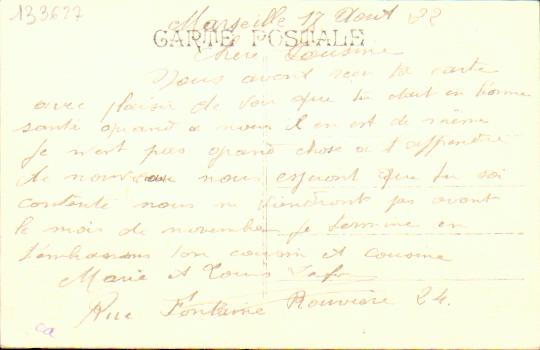 133627
Marseille 17 Aout 22
CARTE POSTALE
Chère Cousine
Nous avont reçu ta carte
avec plaisir de voir que tu était en bonne
santé quand a nous il en est de même
Je n'ert pas grand chose a t'apprendre
de nouveau nous esperont que tu soi
contente nous ne viendront pas avant
le mois de novembre je termine en
t'embrassans ton cousin et cousine
Marie et Louis
Rue Fontaine Rouvière 24.
ca